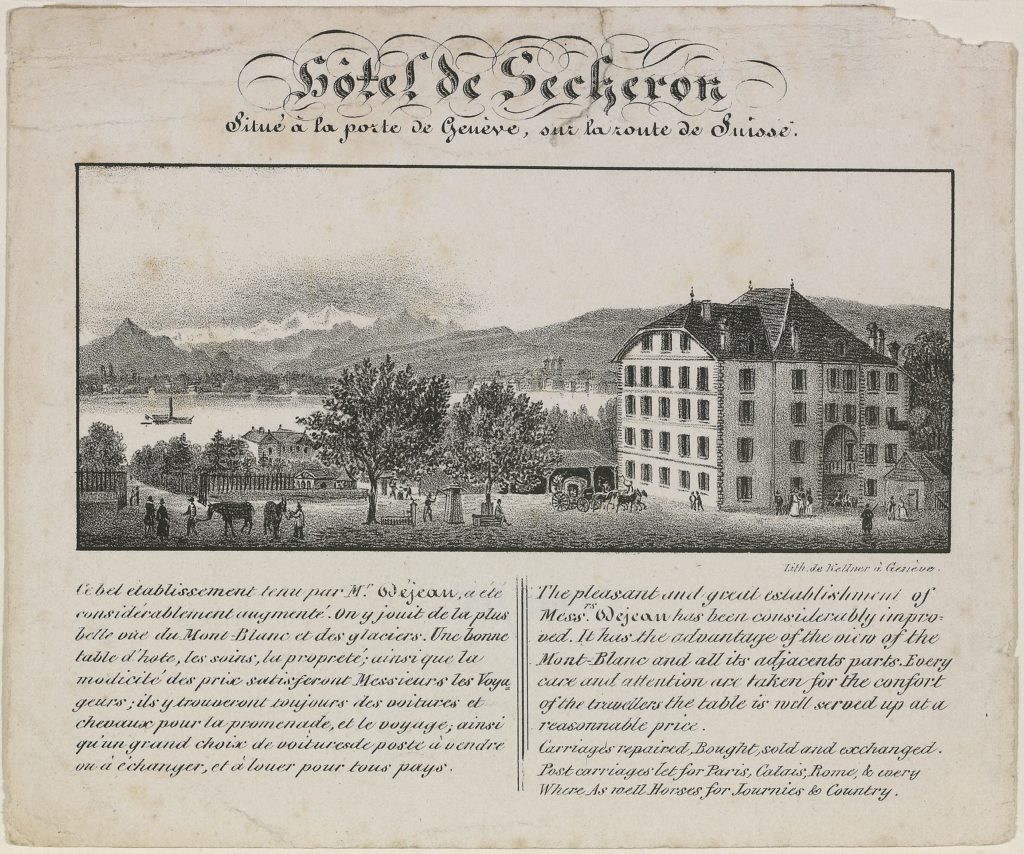 Hôtel de Secheron
Situé à la porte de Genève, sur la route de Suisse.
Lith. de Kellner à Genève.
Ce bel établissement tenu par Mr. Déjean, a été
considérablement augmenté. On y jouit de la plus
belle vue du Mont-Blanc et des glaciers. Une bonne
table d'hote, les soins, la propreté; ainsi que la
modicité des prix satisferont Messieurs les Voya-
geurs; ils y trouveront toujours des voitures et
chevaux pour la promenade, et le voyage; ainsi
qu'un grand choix de voitures de poste à vendre
ou à échanger, et à louer pour tous pays.
The pleasant and great establishment of
Messrs. Déjean has been considerably impro-
ved. It has the advantage of the view of the
Mont-Blanc and all its adjacents parts. Every
care and attention are taken for the confort
of the travellers the table is well served up at a
reasonnable price.
Carriages repaired, Bought, sold and exchanged.
Post carriages let for Paris, Calais, Rome, & every
Where As well Horses for Journies & Country.